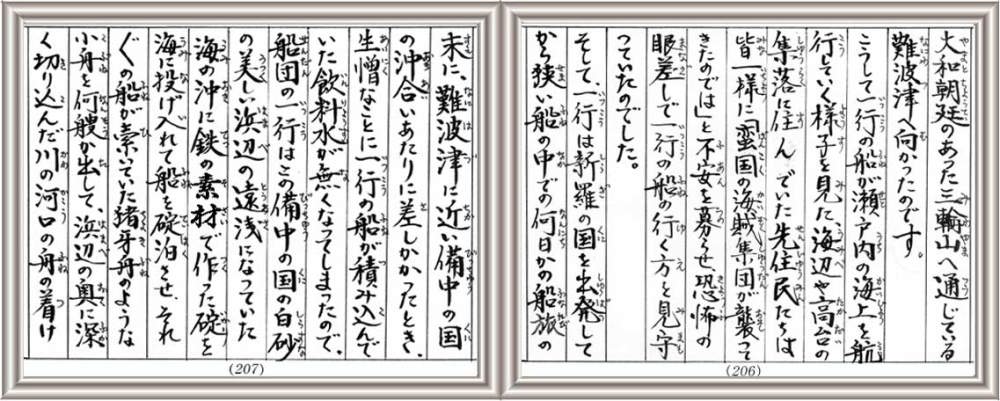 大和朝廷のあった三輪山へ通じている
難波津へ向かったのです。
こうして一行の船が瀬戸内の海上を航
行していく様子を見た海辺や高台の
集落に住んでいた先住民たちは
皆一様に「蛮国の海賊集団が襲って
きたのでは」と不安を募らせ、恐怖の
眼差しで一行の船の行く方を見守
っていたのでした。
そして、一行は新羅の国を出発して
から狭い船の中での何日かの船旅の
(206)
末に、難波津に近い備中の国
の沖合いあたりに差しかかったとき、
生憎なことに一行の船が積み込んで
いた飲料水が無くなってしまったので、
船団の一行はこの備中の国の白砂
の美しい浜辺の遠浅になっていた
海の沖に鉄の素材で作った碇を
海に投げ入れて船を碇泊させ、それ
ぐの船が索いていた猪牙舟のような
小舟を何艘か出して、浜辺の奥に深
く切り込んだ川の河口の舟の着け
(207)